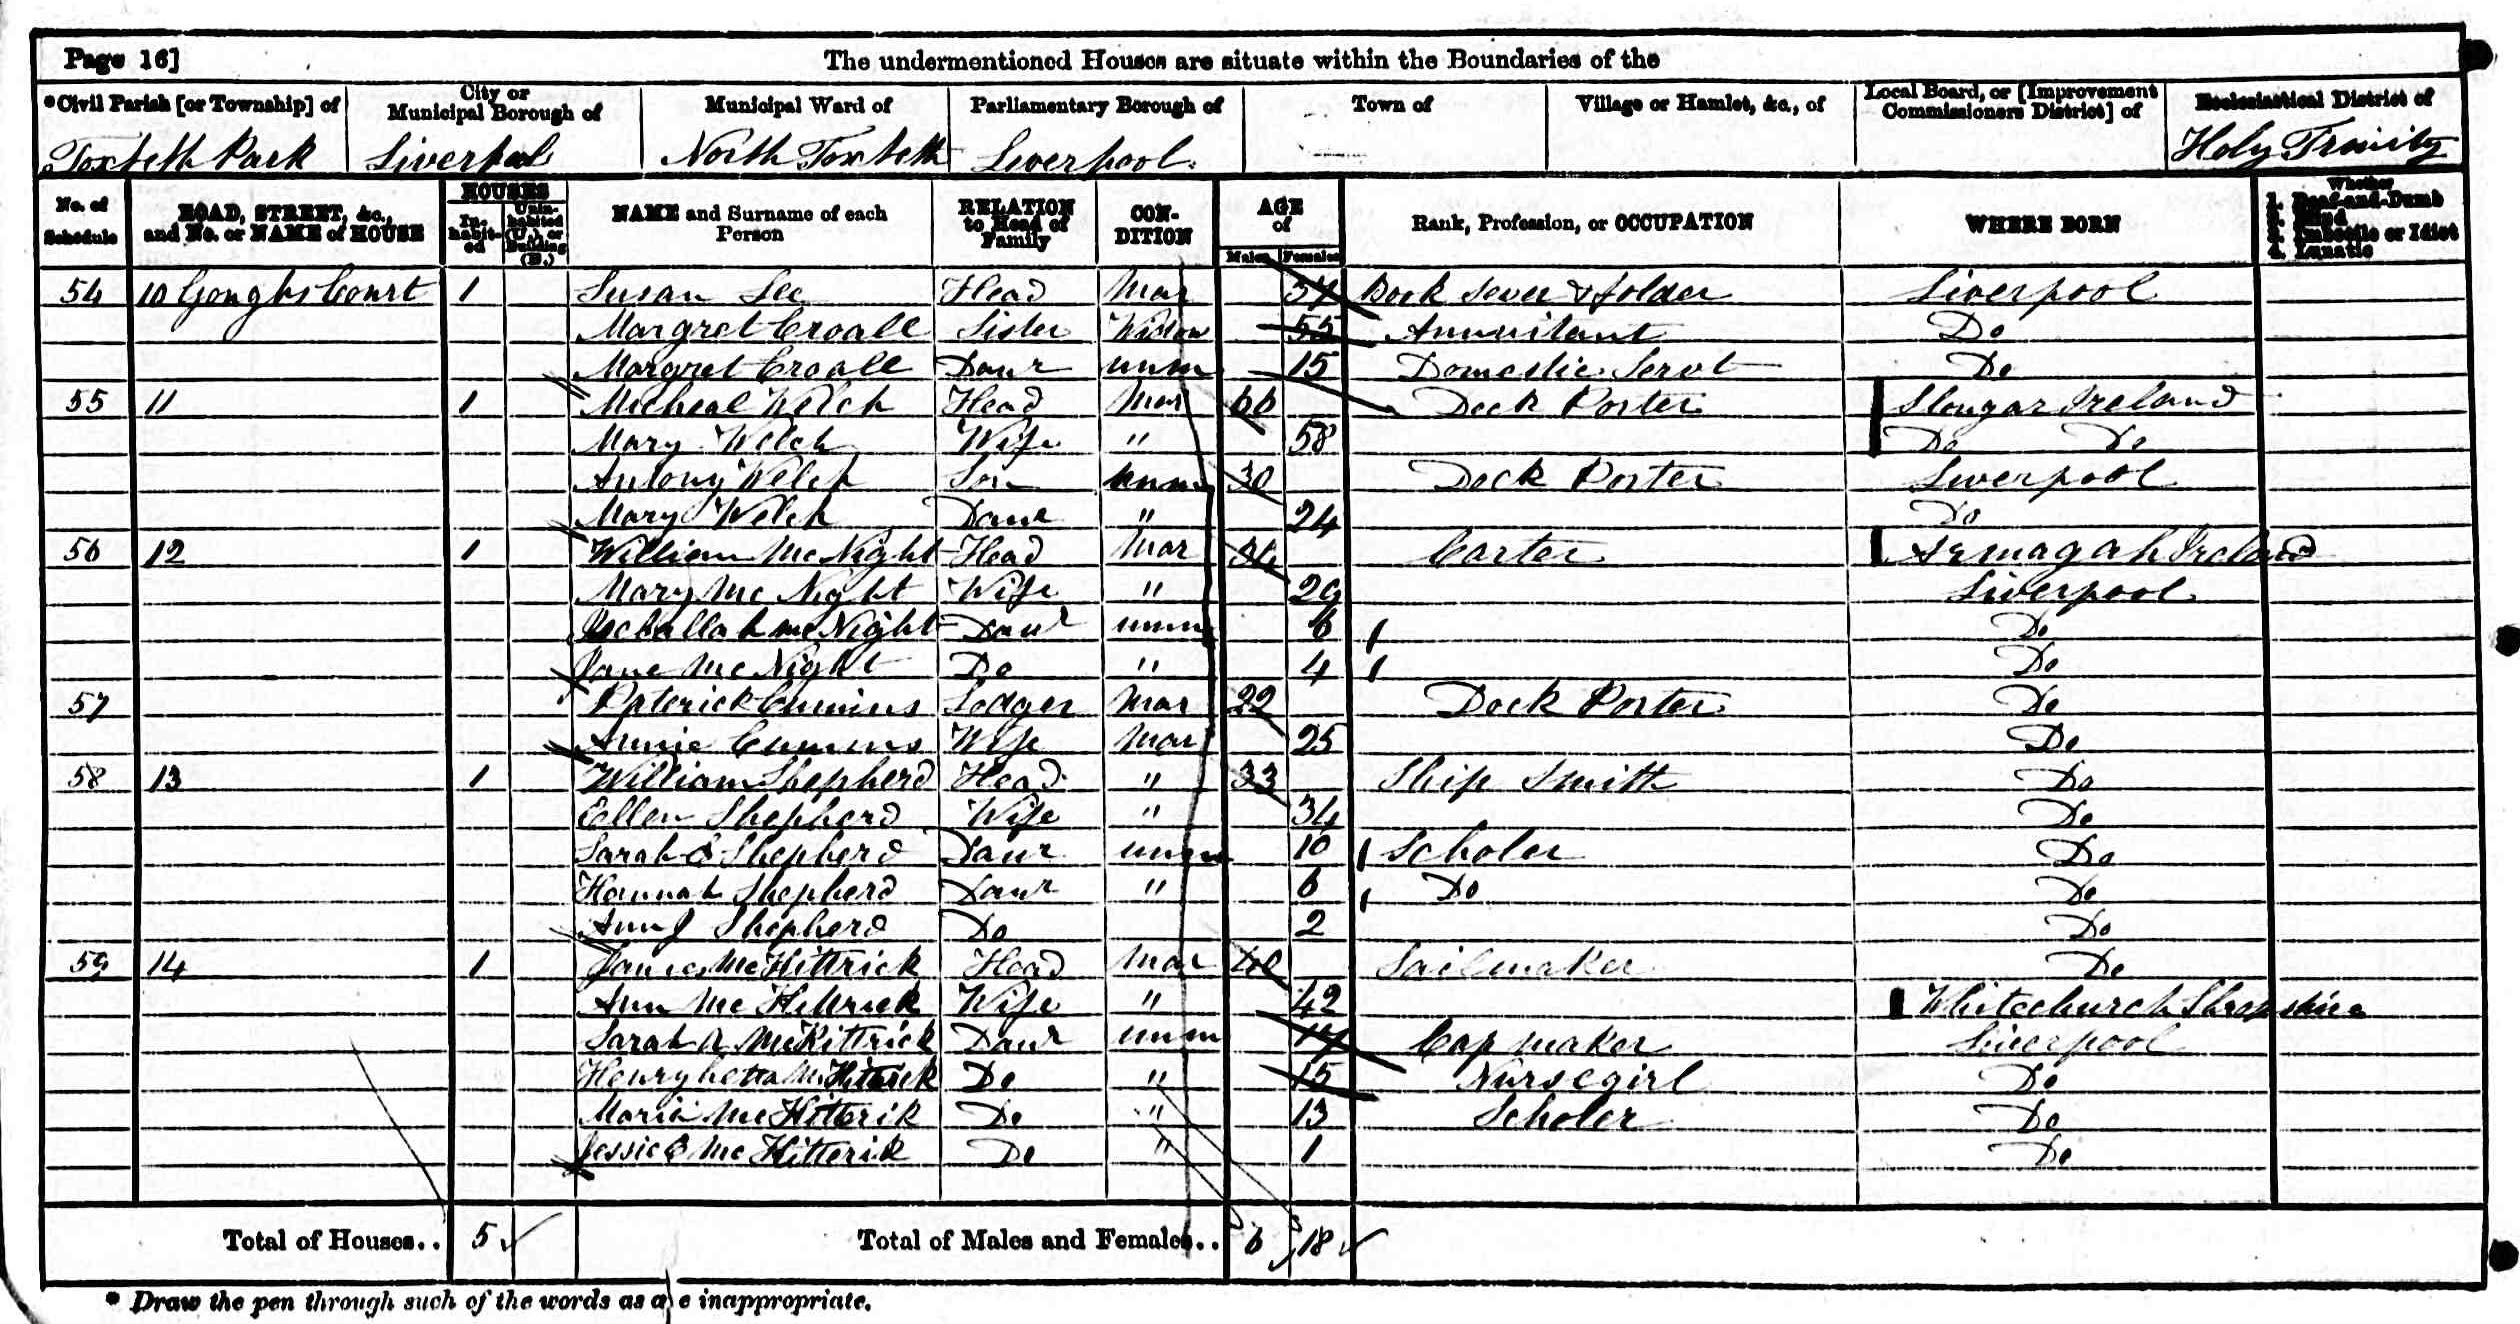 Page 16]
The undermentioned Houses are situate within the Boundaries of the
*Civil Parish [or Township] of | City or Municipal Borough of | Municipal Ward of | Parliamentary Borough of | Town of | Village or Hamlet, &c., of | Local Board, or [Improvement Commissioners District] of | Ecclesiastical District of
Toxteth Park | Liverpool | North Toxteth | Liverpool | Holy Trinity
No. of Schedule | ROAD, STREET, &c., and No. or NAME of HOUSE | HOUSES Inhabited | Uninhabited (U.), or Building (B.) | NAME and Surname of each Person | RELATION to Head of Family | CONDITION | AGE of Males | Females | Rank, Profession, or OCCUPATION | WHERE BORN | Whether 1. Deaf-and-Dumb 2. Blind 3. Imbecile or Idiot 4. Lunatic
54 | 10 Goughs Court | 1 | Susan Lee | Head | Mar | Book Sewer & folder | Liverpool
Margret Croall | Sister | Widow | 55 | Annuitant | Do
Margret Croall | Daur | unm | 15 | Domestic Servt | Do
55 | 11 | 1 | Micheal Welch | Head | Mar | 66 | Dock Porter | Ireland
Mary Welch | Wife | " | 58 | Do Do
Antony Welch | Son | unm | 30 | Dock Porter | Liverpool
Mary Welch | Daur | " | 24 | Do
56 | 12 | 1 | William McNight | Head | Mar | 34 | Carter | Armagah Ireland
Mary Mc Night | Wife | " | 29 | Liverpool
McNight | Daur | unm | 6 | Do
Jane McNight | Do | " | 4 | Do
57 | Cummins | Lodger | Mar | 22 | Dock Porter | Do
Annie Cummins | Wife | Mar | 25 | Do
58 | 13 | 1 | William Shepherd | Head | " | 33 | Ship Smith | Do
Ellen Shepherd | Wife | " | 34 | Do
Sarah E Shepherd | Daur | unm | 10 | Scholer | Do
Hannah Shepherd | Daur | " | 6 | Do | Do
Ann J Shepherd | Do | 2 | Do
59 | 14 | 1 | James McKittrick | Head | Mar | Sailmaker | Do
Ann Mc Kittrick | Wife | " | 42 | Whitechurch Shropshire
Sarah A McKittrick | Daur | unm | 17 | Cap maker | Liverpool
Do | " | 15 | Nursegirl | Do
Maria Mc Kitterik | Do | " | 13 | Scholer | Do
Jessie E Mc Kitterik | Do | " | 1 | Do
Total of Houses.. 5 | Total of Males and Females.. 6 | 18
* Draw the pen through such of the words as are inappropriate.